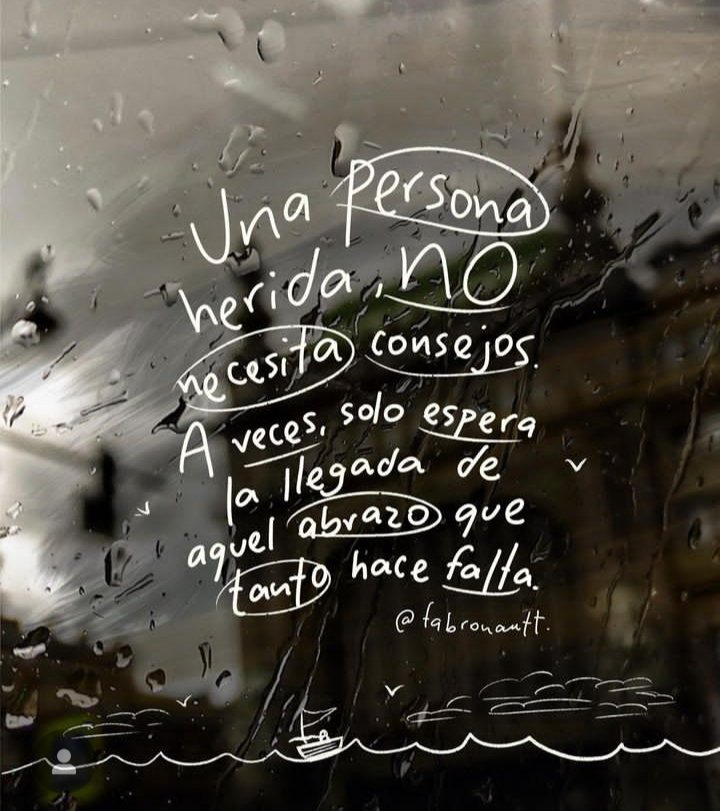 Una persona
herida, NO
necesita consejos.
A veces, solo espera
la llegada de
aquel abrazo que
tanto hace falta.
@fabronautt.